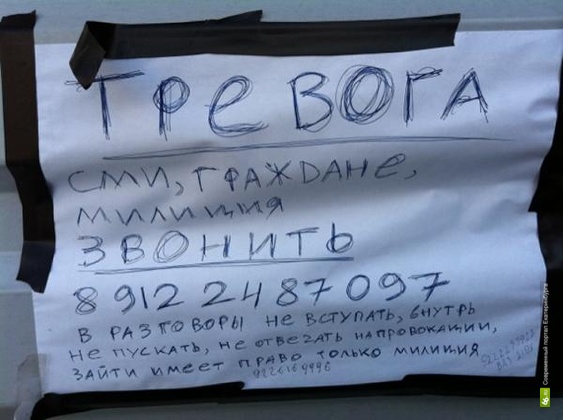 ТРЕВОГА
СМИ, ГРАЖДАНЕ,
МИЛИЦИЯ
ЗВОНИТЬ
8 912 24 87 097
В РАЗГОВОРЫ НЕ ВСТУПАТЬ, ВНУТРЬ
НЕ ПУСКАТЬ, НЕ ОТВЕЧАТЬ НА ПРОВОКАЦИИ,
ЗАЙТИ ИМЕЕТ ПРАВО ТОЛЬКО МИЛИЦИЯ
Современный портал Екатеринбурга